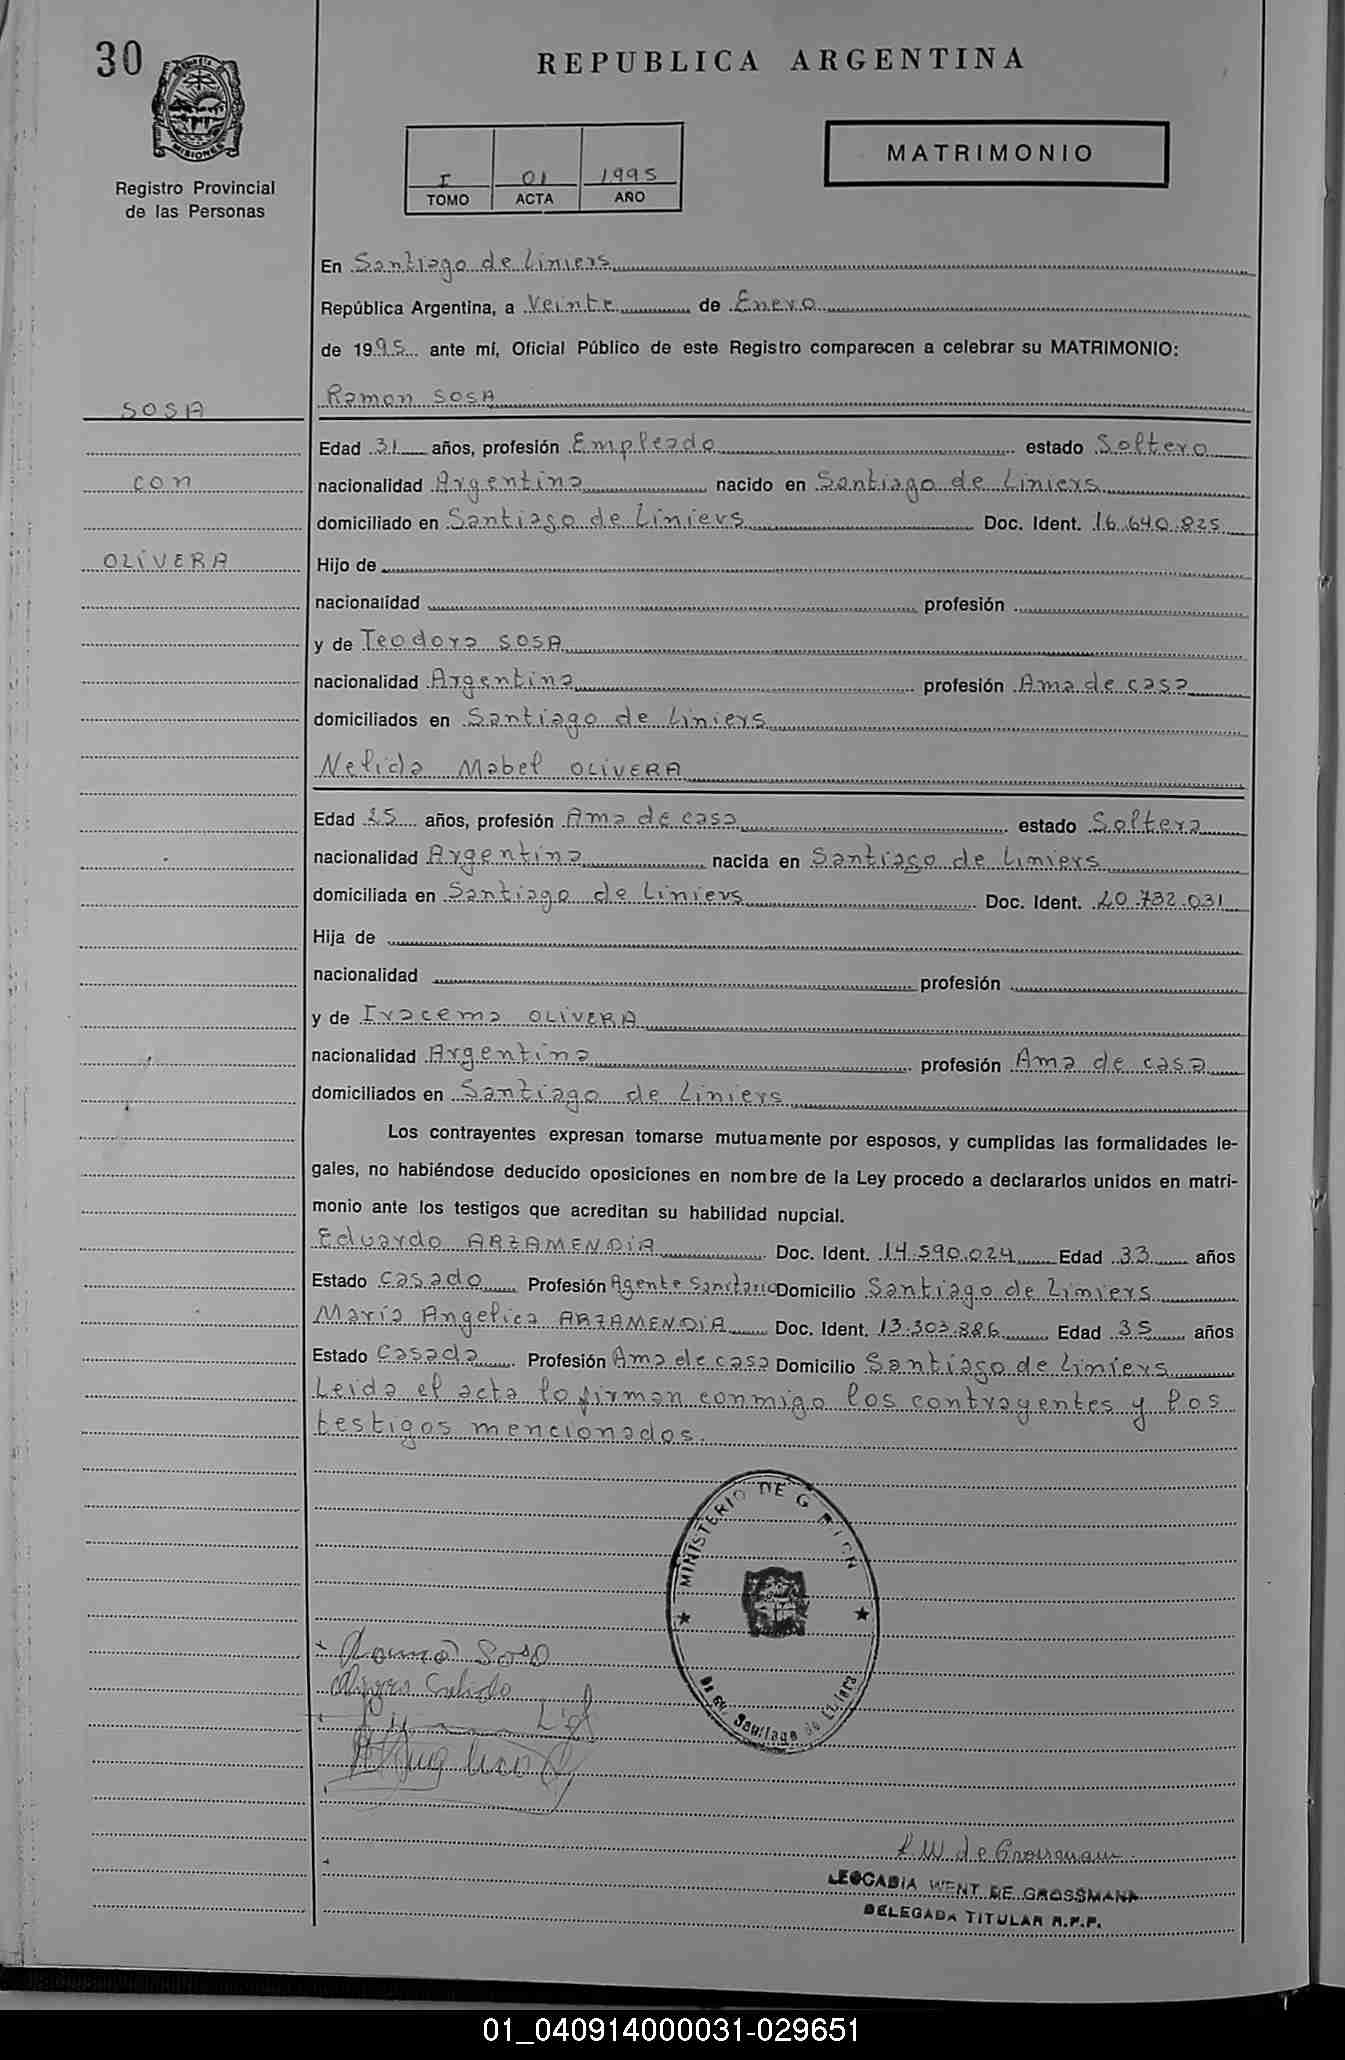 30
MISIONES
Registro Provincial
de las Personas
REPUBLICA ARGENTINA
I 01 1995
TOMO ACTA AÑO
MATRIMONIO
En Santiago de Liniers
República Argentina, a Veinte de Enero
de 1995 ante mí, Oficial Público de este Registro comparecen a celebrar su MATRIMONIO:
SOSA
Ramon SOSA
Edad 31 años, profesión Empleado estado Soltero
con
nacionalidad Argentina nacido en Santiago de Liniers
domiciliado en Santiago de Liniers Doc. Ident. 16.640.825
OLIVERA
Hijo de
nacionalidad profesión
y de Teodora SOSA
nacionalidad Argentina profesión Ama de casa
domiciliados en Santiago de Liniers
Nelida Mabel OLIVERA
Edad 25 años, profesión Ama de casa estado Soltera
nacionalidad Argentina nacida en Santiago de Liniers
domiciliada en Santiago de Liniers Doc. Ident. 20.732.031
Hija de
nacionalidad profesión
y de Iracema OLIVERA
nacionalidad Argentina profesión Ama de casa
domiciliados en Santiago de Liniers
Los contrayentes expresan tomarse mutuamente por esposos, y cumplidas las formalidades le-
gales, no habiéndose deducido oposiciones en nombre de la Ley procedo a declararlos unidos en matri-
monio ante los testigos que acreditan su habilidad nupcial.
Eduardo ARZAMENDIA Doc. Ident. 14.590.024 Edad 33 años
Estado Casado Profesión Agente Sanitario Domicilio Santiago de Liniers
María Angelica ARZAMENDIA Doc. Ident. 13.303.886 Edad 35 años
Estado Casada Profesión Ama de casa Domicilio Santiago de Liniers
Leida el acta lo firman conmigo los contrayentes y los
testigos mencionados.
MINISTERIO DE
Santiago de Liniers
Sosa
L. W de Grossmann
LEOCADIA WENT DE GROSSMANN
DELEGADA TITULAR R.P.P.
01_040914000031-029651